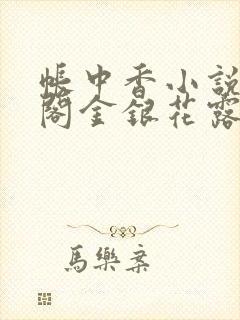 帳中香小說
閣金銀花露
馬樂案